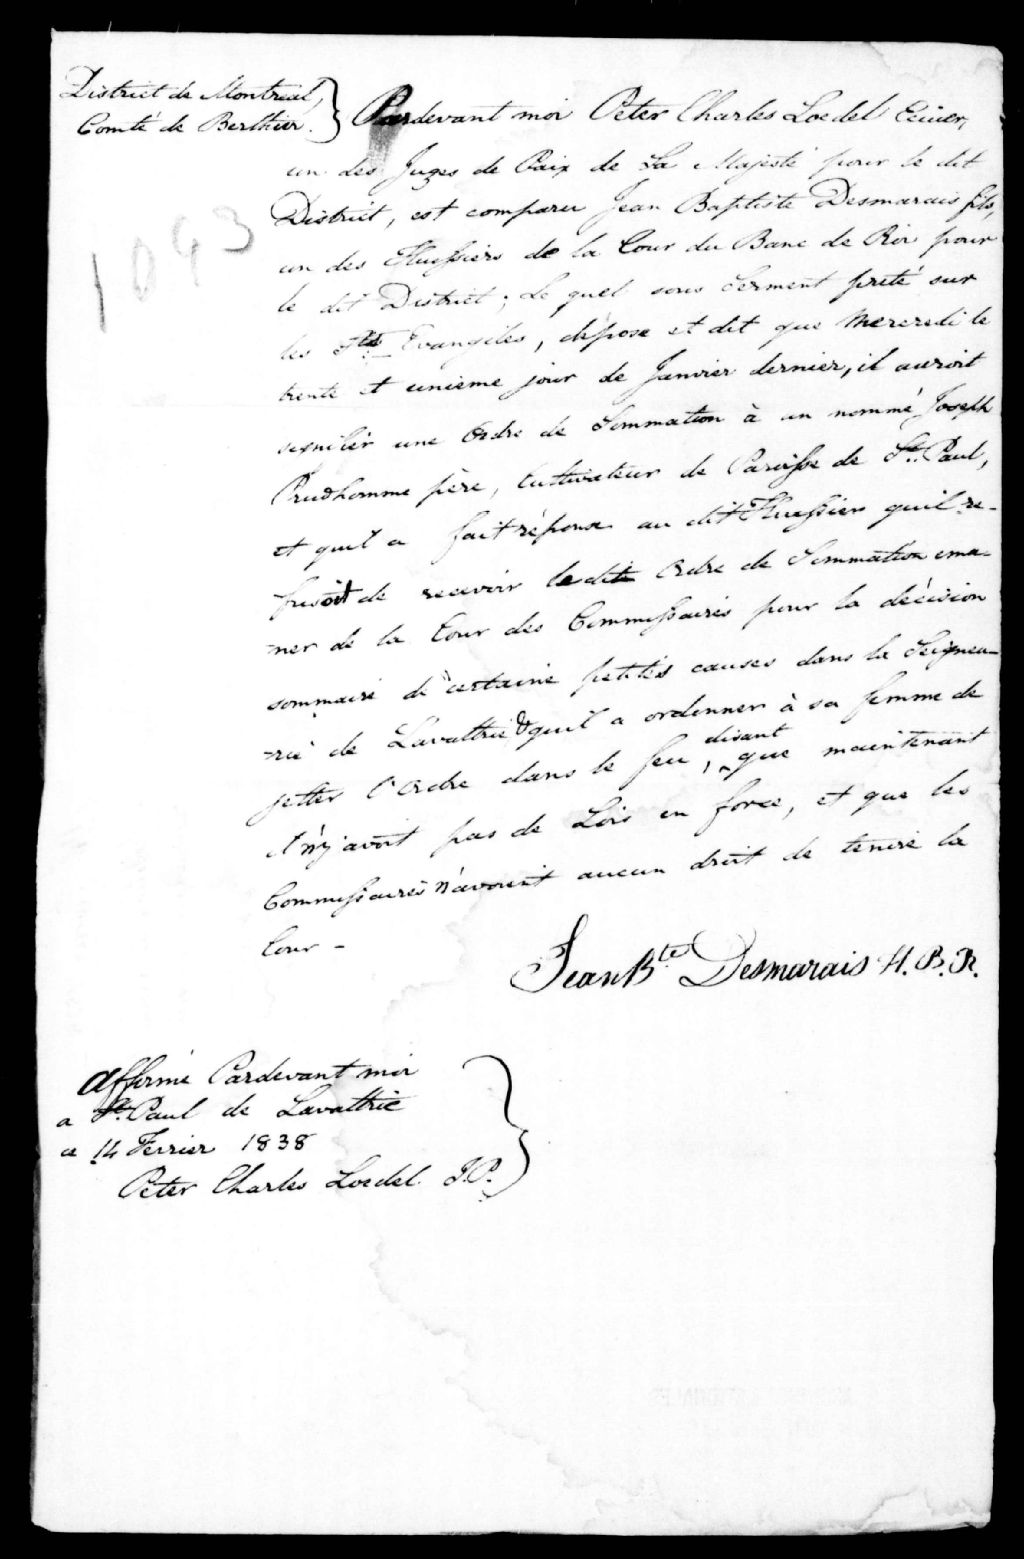 District de Montreal,
Comté de Berthier.
Pardevant moi Peter Charles Loedel Ecuier,
un des Juges de Paix de Sa Majesté pour le dit
District, est comparu Jean Baptiste Desmarais fils,
un des Huissiers de la Cour du Banc de Roi pour
le dit District; Le quel sous Serment preté sur
les Sts Evangiles, dépose et dit que Mercredi le
trente et unieme jour de Janvier dernier, il auroit
signifier une Ordre de Sommation à un nommé Joseph
Prudhomme père, Cultivateur de Paroisse de St. Paul,
et quil a fait réponse au dit Huissier quil re-
fusoit de recevoir ledit Ordre de Sommation ema-
-ner de la Cour des Commissaires pour la décision
sommaire de certaine petites causes dans la Seigneu-
-rie de Lavaltrie & quil a ordonner à sa femme de
jetter l'Ordre dans le feu, disant que maintenant
il n'y avoit pas de Lois en force, et que les
Commissaires n'avoient aucun droit de tenire la
Cour -
Jean Bte Desmarais H. B. R.
1093
Affirmé Pardevant moi
a St. Paul de Lavaltrie
ce 14 Fevrier 1838
Peter Charles Loedel J.P.